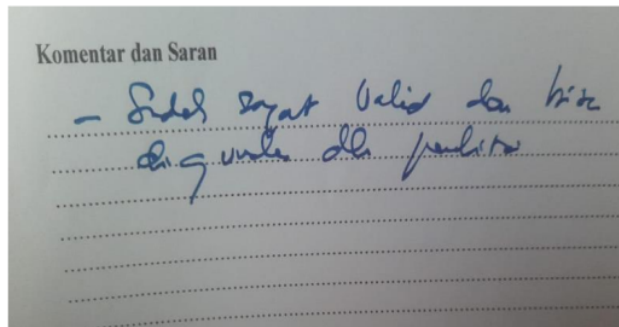 Komentar dan Saran
- Sudah sangat valid dan bisa
digunakan dlm penelitian